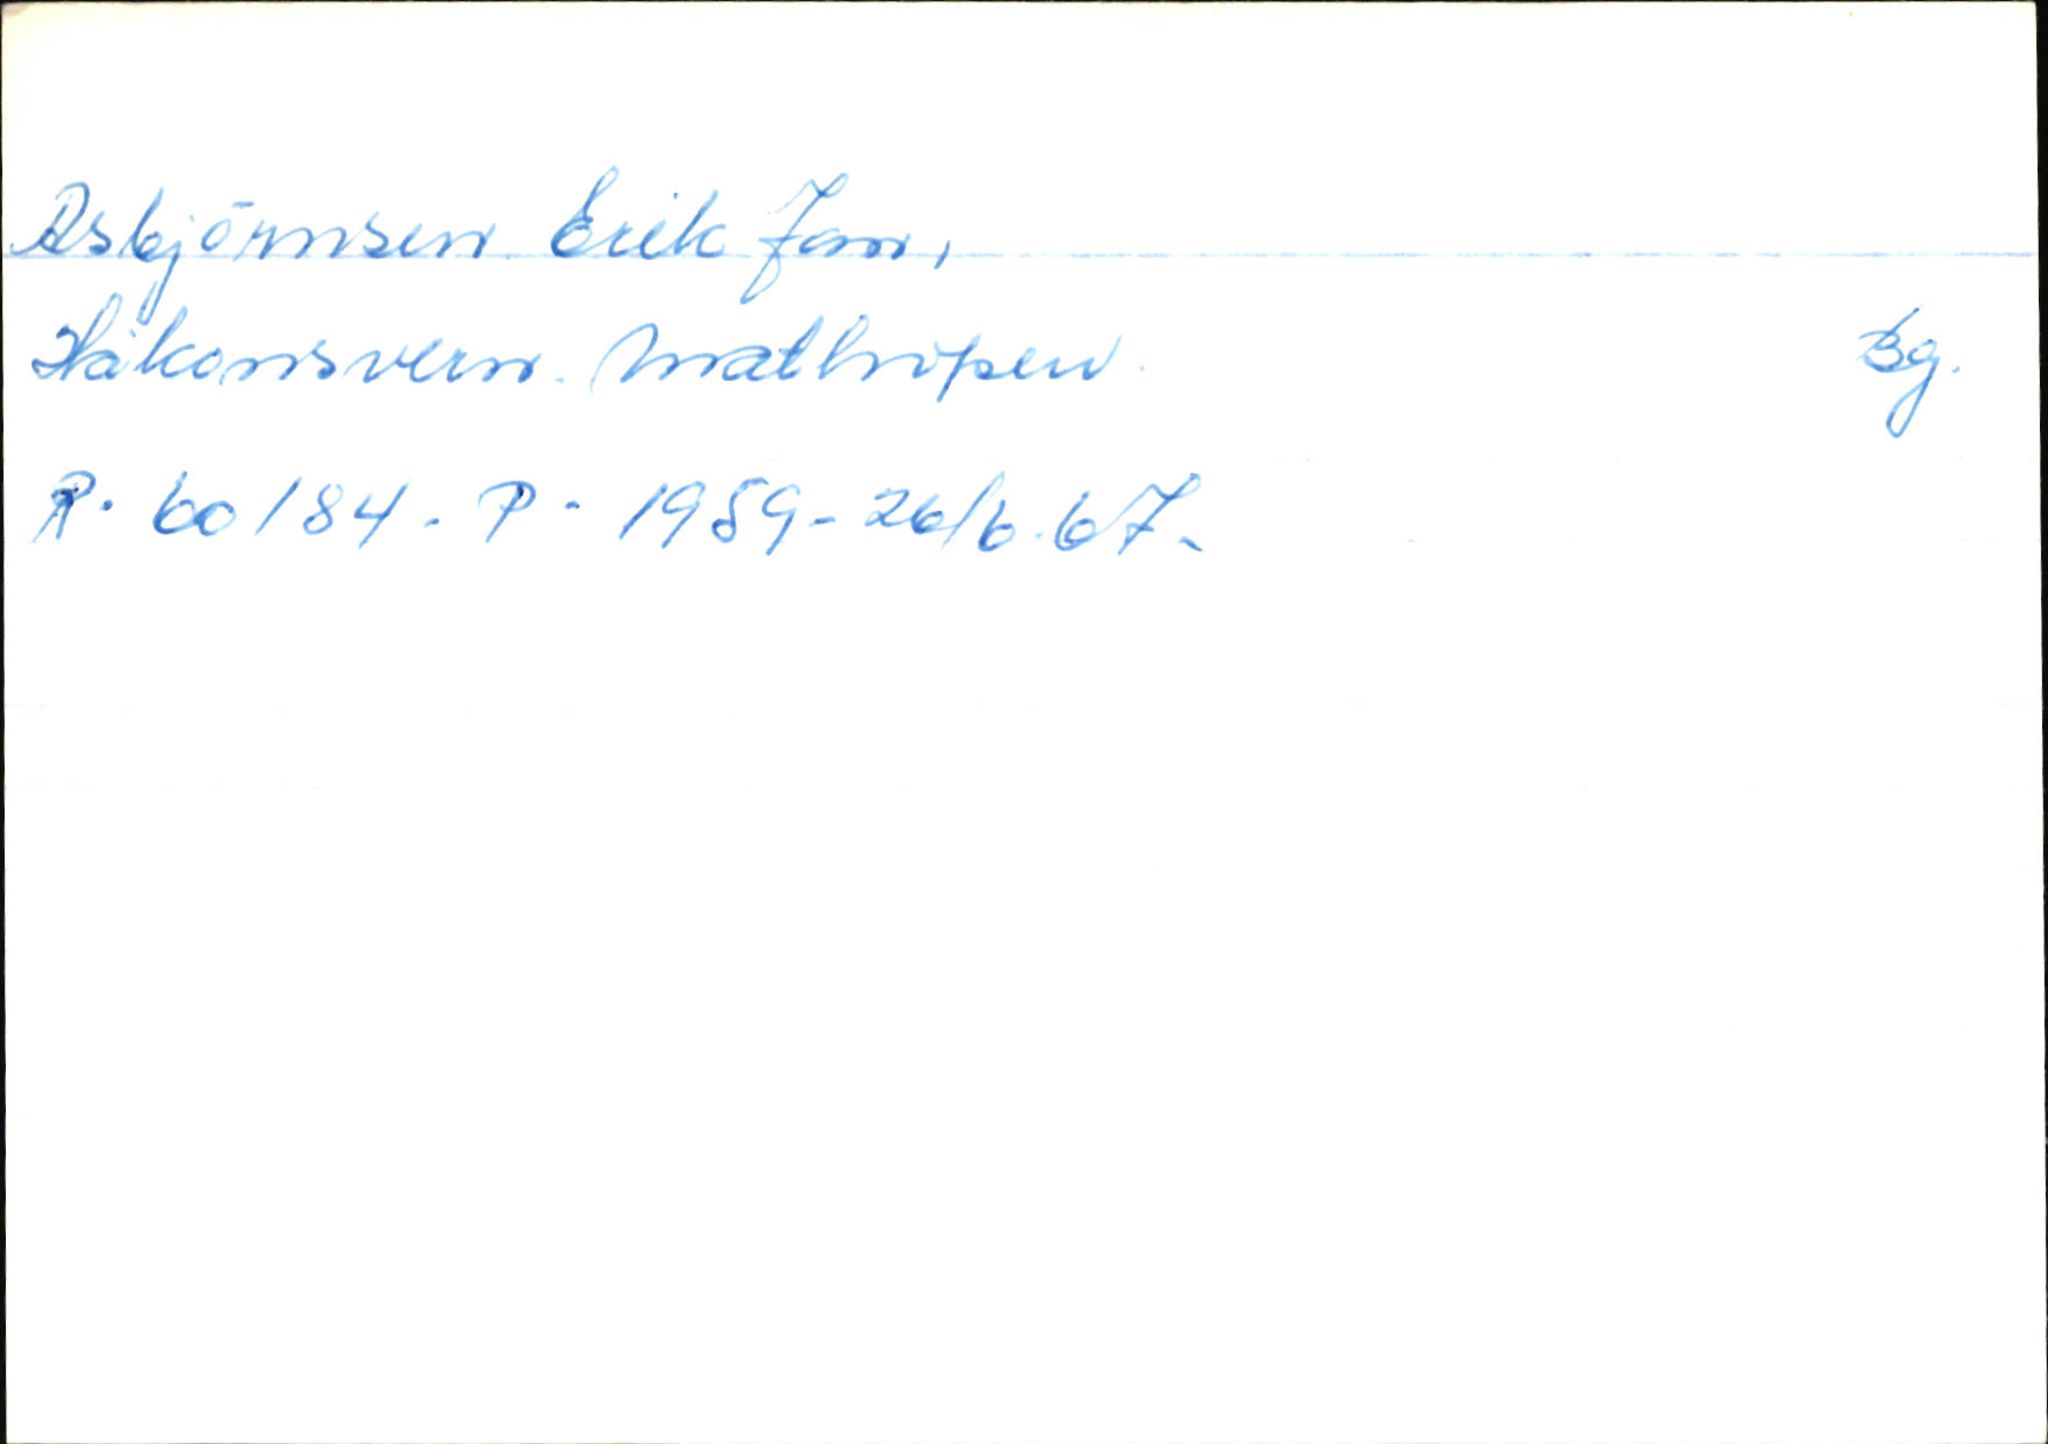 Asbjörnsen Erik Jan,
Håkonsvern. Mathopen. Bg.
R. 60/84. P - 1959 - 26/6.67.